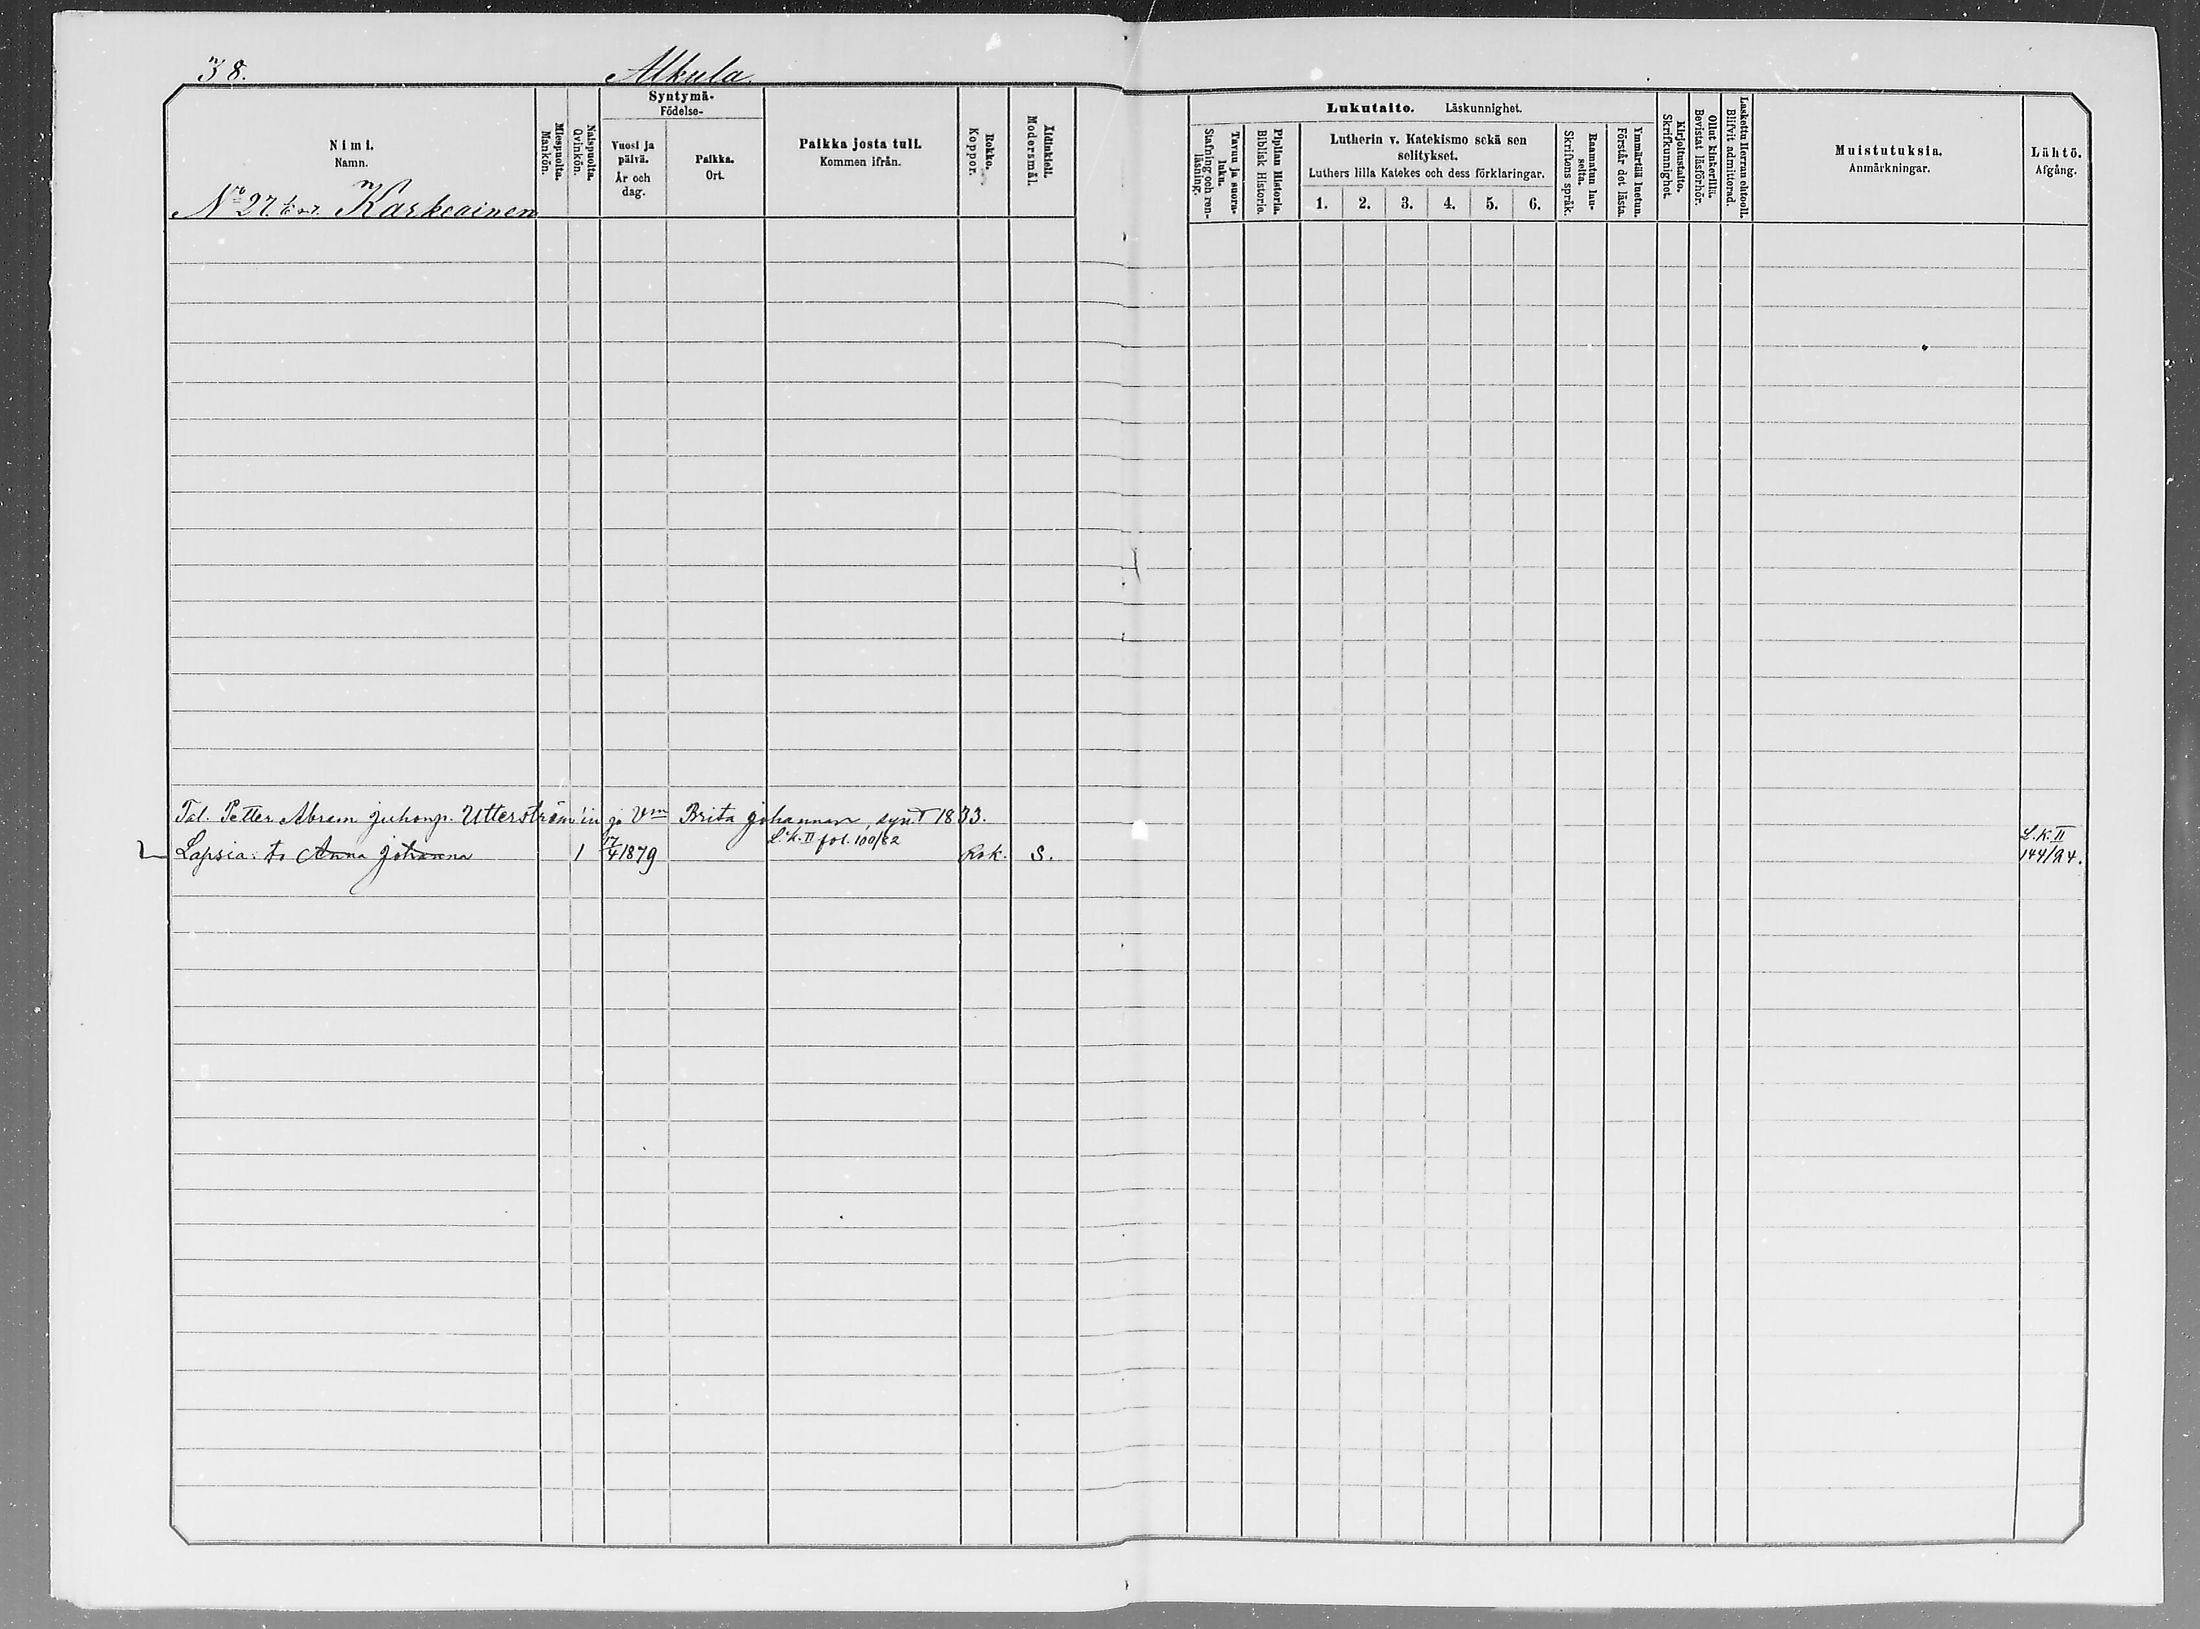 38.
Alkula
Nimi.
Namn.
Miespuolta.
Mankön.
Naispuolta.
Qvinkön.
Syntymä-
Födelse-
Vuosi ja
päivä.
År och
dag.
Paikka.
Ort.
Paikka josta tuli.
Kommen ifrån.
Rokko.
Koppor.
Äidinkieli.
Modersmål.
Lukutaito. Läskunnighet.
Tavuu ja suora-
luku.
Stafning och ren-
läsning.
Pipliian Historia.
Biblisk Historie.
Lutherin v. Katekismo sekä sen
selitykset.
Luthers lilla Katekes och dess förklaringar.
1. 2. 3. 4. 5. 6.
Raamatun lu-
selta.
Skriftens språk.
Ymmärtää luetun.
Förstår det lästa.
Kirjoitustaito.
Skrifkunnighet.
Ollut kinkerillä.
Bevistat läsförhör.
Laskettu Herran ehtooll.
Blifvit admitterad.
Muistutuksia.
Anmärkningar.
Lähtö.
Afgång.
No 27. Karkeainen
Tal. Petter Abram Juhonp. Utterström'in ja Vm Brita Johannan, syn. 1833.
L.K. II fol. 100/82
Lapsia: to Anna Johanna 1 17/4 1879 Rok. S. L.K. II
144/24.